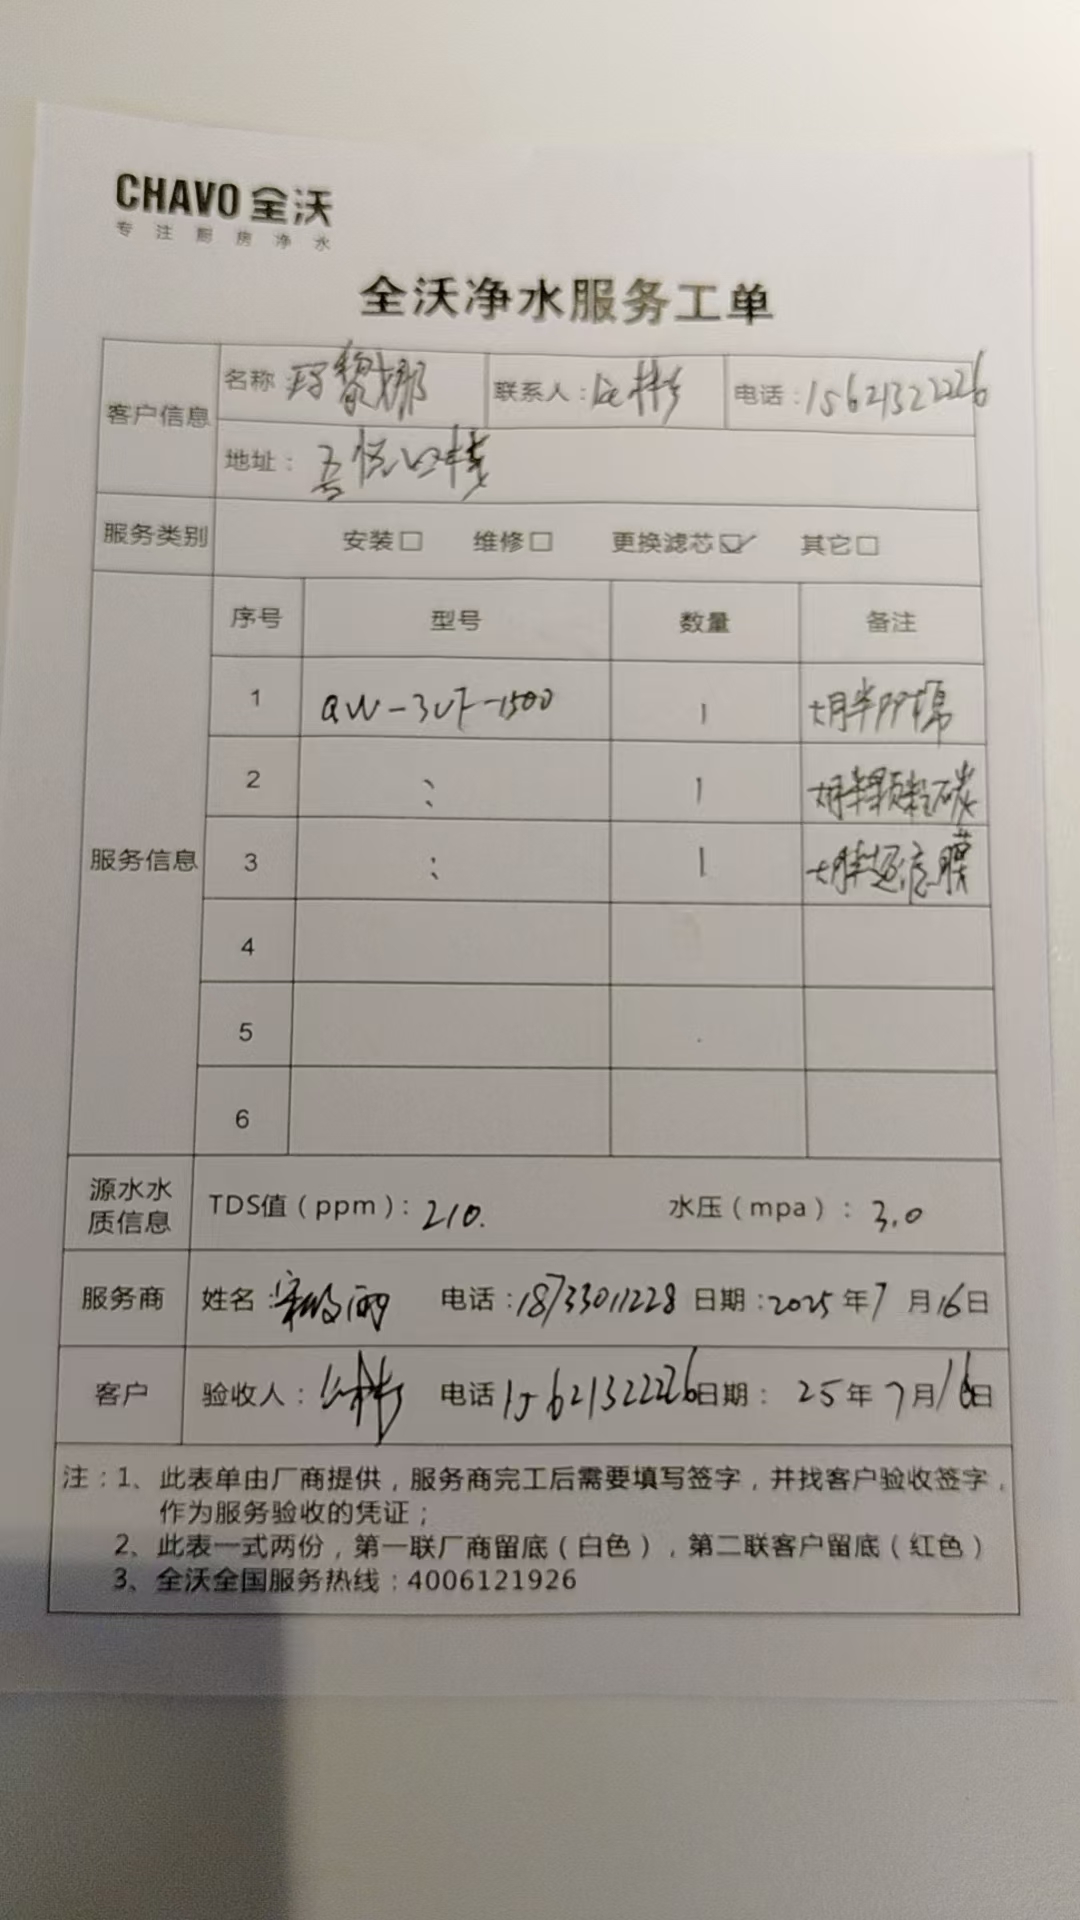 CHAVO 全沃
专注厨房净水
全沃净水服务工单
客户信息
名称:玛黎娜 联系人: 电话:15621322226
地址:吾悦四楼
服务类别 安装□ 维修□ 更换滤芯☑ 其它□
服务信息
序号 型号 数量 备注
1 QW-3UF-1500 1 七月半PP棉
2 : 1 七月半颗粒碳
3 : 1 七月半超滤膜
4
5
6
源水水质信息 TDS值(ppm):210. 水压(mpa):3.0
服务商 姓名: 电话:18733011228 日期:2025年7月16日
客户 验收人: 电话15621322226日期:25年7月16日
注:1、此表单由厂商提供,服务商完工后需要填写签字,并找客户验收签字,
作为服务验收的凭证;
2、此表一式两份,第一联厂商留底(白色),第二联客户留底(红色)
3、全沃全国服务热线:4006121926